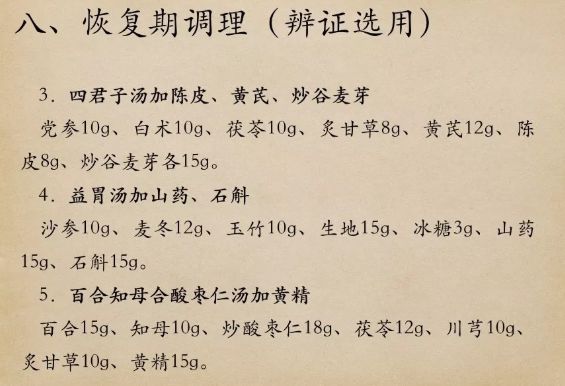 八、恢复期调理（辨证选用）
3．四君子汤加陈皮、黄芪、炒谷麦芽
党参10g、白术10g、茯苓10g、炙甘草8g、黄芪12g、陈
皮8g、炒谷麦芽各15g。
4．益胃汤加山药、石斛
沙参10g、麦冬12g、玉竹10g、生地15g、冰糖3g、山药
15g、石斛15g。
5．百合知母合酸枣仁汤加黄精
百合15g、知母10g、炒酸枣仁18g、茯苓12g、川芎10g、
炙甘草10g、黄精15g。